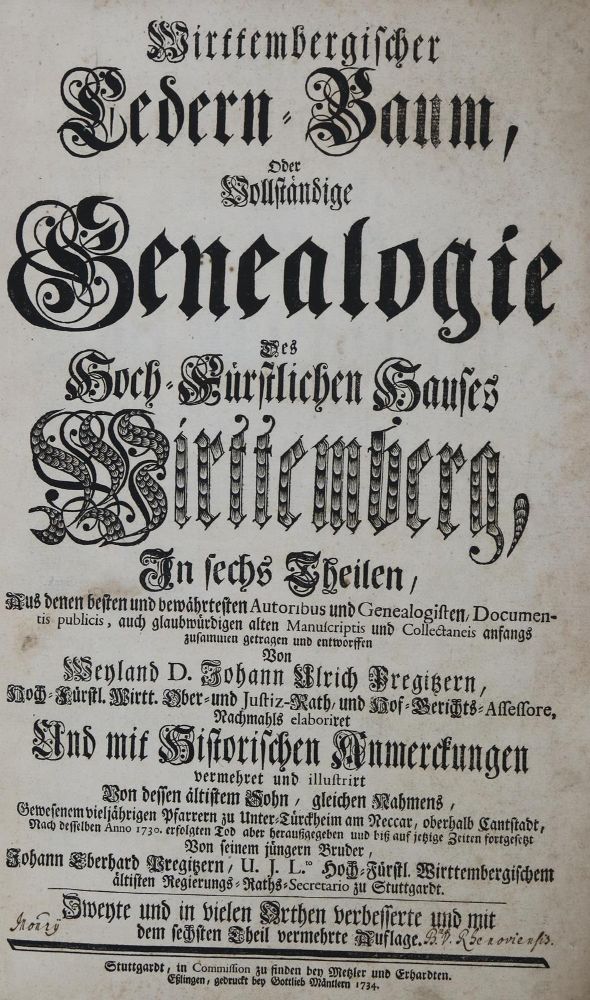 Wirttembergischer
Cedern-Baum,
Oder
Vollständige
Genealogie
Des
Hoch-Fürstlichen Hauses
Wirttemberg,
In sechs Theilen,
Aus denen besten und bewährtesten Autoribus und Genealogisten, Documen-
tis publicis, auch glaubwürdigen alten Manuscriptis und Collectaneis anfangs
zusammen getragen und entworffen
Von
Weyland D. Johann Ulrich Pregitzern,
Hoch-Fürstl. Wirtt. Ober- und Justiz-Rath, und Hof-Gerichts-Assessore,
Nachmahls elaboriret
Und mit Historischen Anmerckungen
vermehret und illustrirt
Von dessen ältistem Sohn, gleichen Nahmens,
Gewesenem vieljährigen Pfarrern zu Unter-Türckheim am Neccar, oberhalb Cantstadt,
Nach desselben Anno 1730. erfolgten Tod aber heraußgegeben und biß auf jetzige Zeiten fortgesetzt
Von seinem jüngern Bruder,
Johann Eberhard Pregitzern, U. J. L.to Hoch-Fürstl. Wirttembergischem
ältisten Regierungs-Raths-Secretario zu Stuttgardt.
Zweyte und in vielen Orthen verbesserte und mit
dem sechsten Theil vermehrte Auflage.
Monrÿ
Rhenoviensis.
Stuttgardt, in Commission zu finden bey Metzler und Erhardten.
Eßlingen, gedruckt bey Gottlieb Mäntlern 1734.